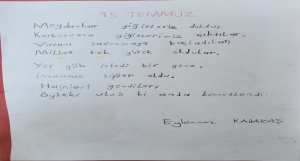 15 TEMMUZ
Meydanlar yiğitlerle doldu,
Korkusuzca yiğitlerimiz çıktılar.
Vatanı savunmaya başladılar,
Millet tek yürek oldular.
Yer gök inledi bir gece,
İnsanımız siper oldu.
Hainleri yendiler,
Öyleki ulus bi anda kenetlendi.
Eylemnur KARAKAŞ